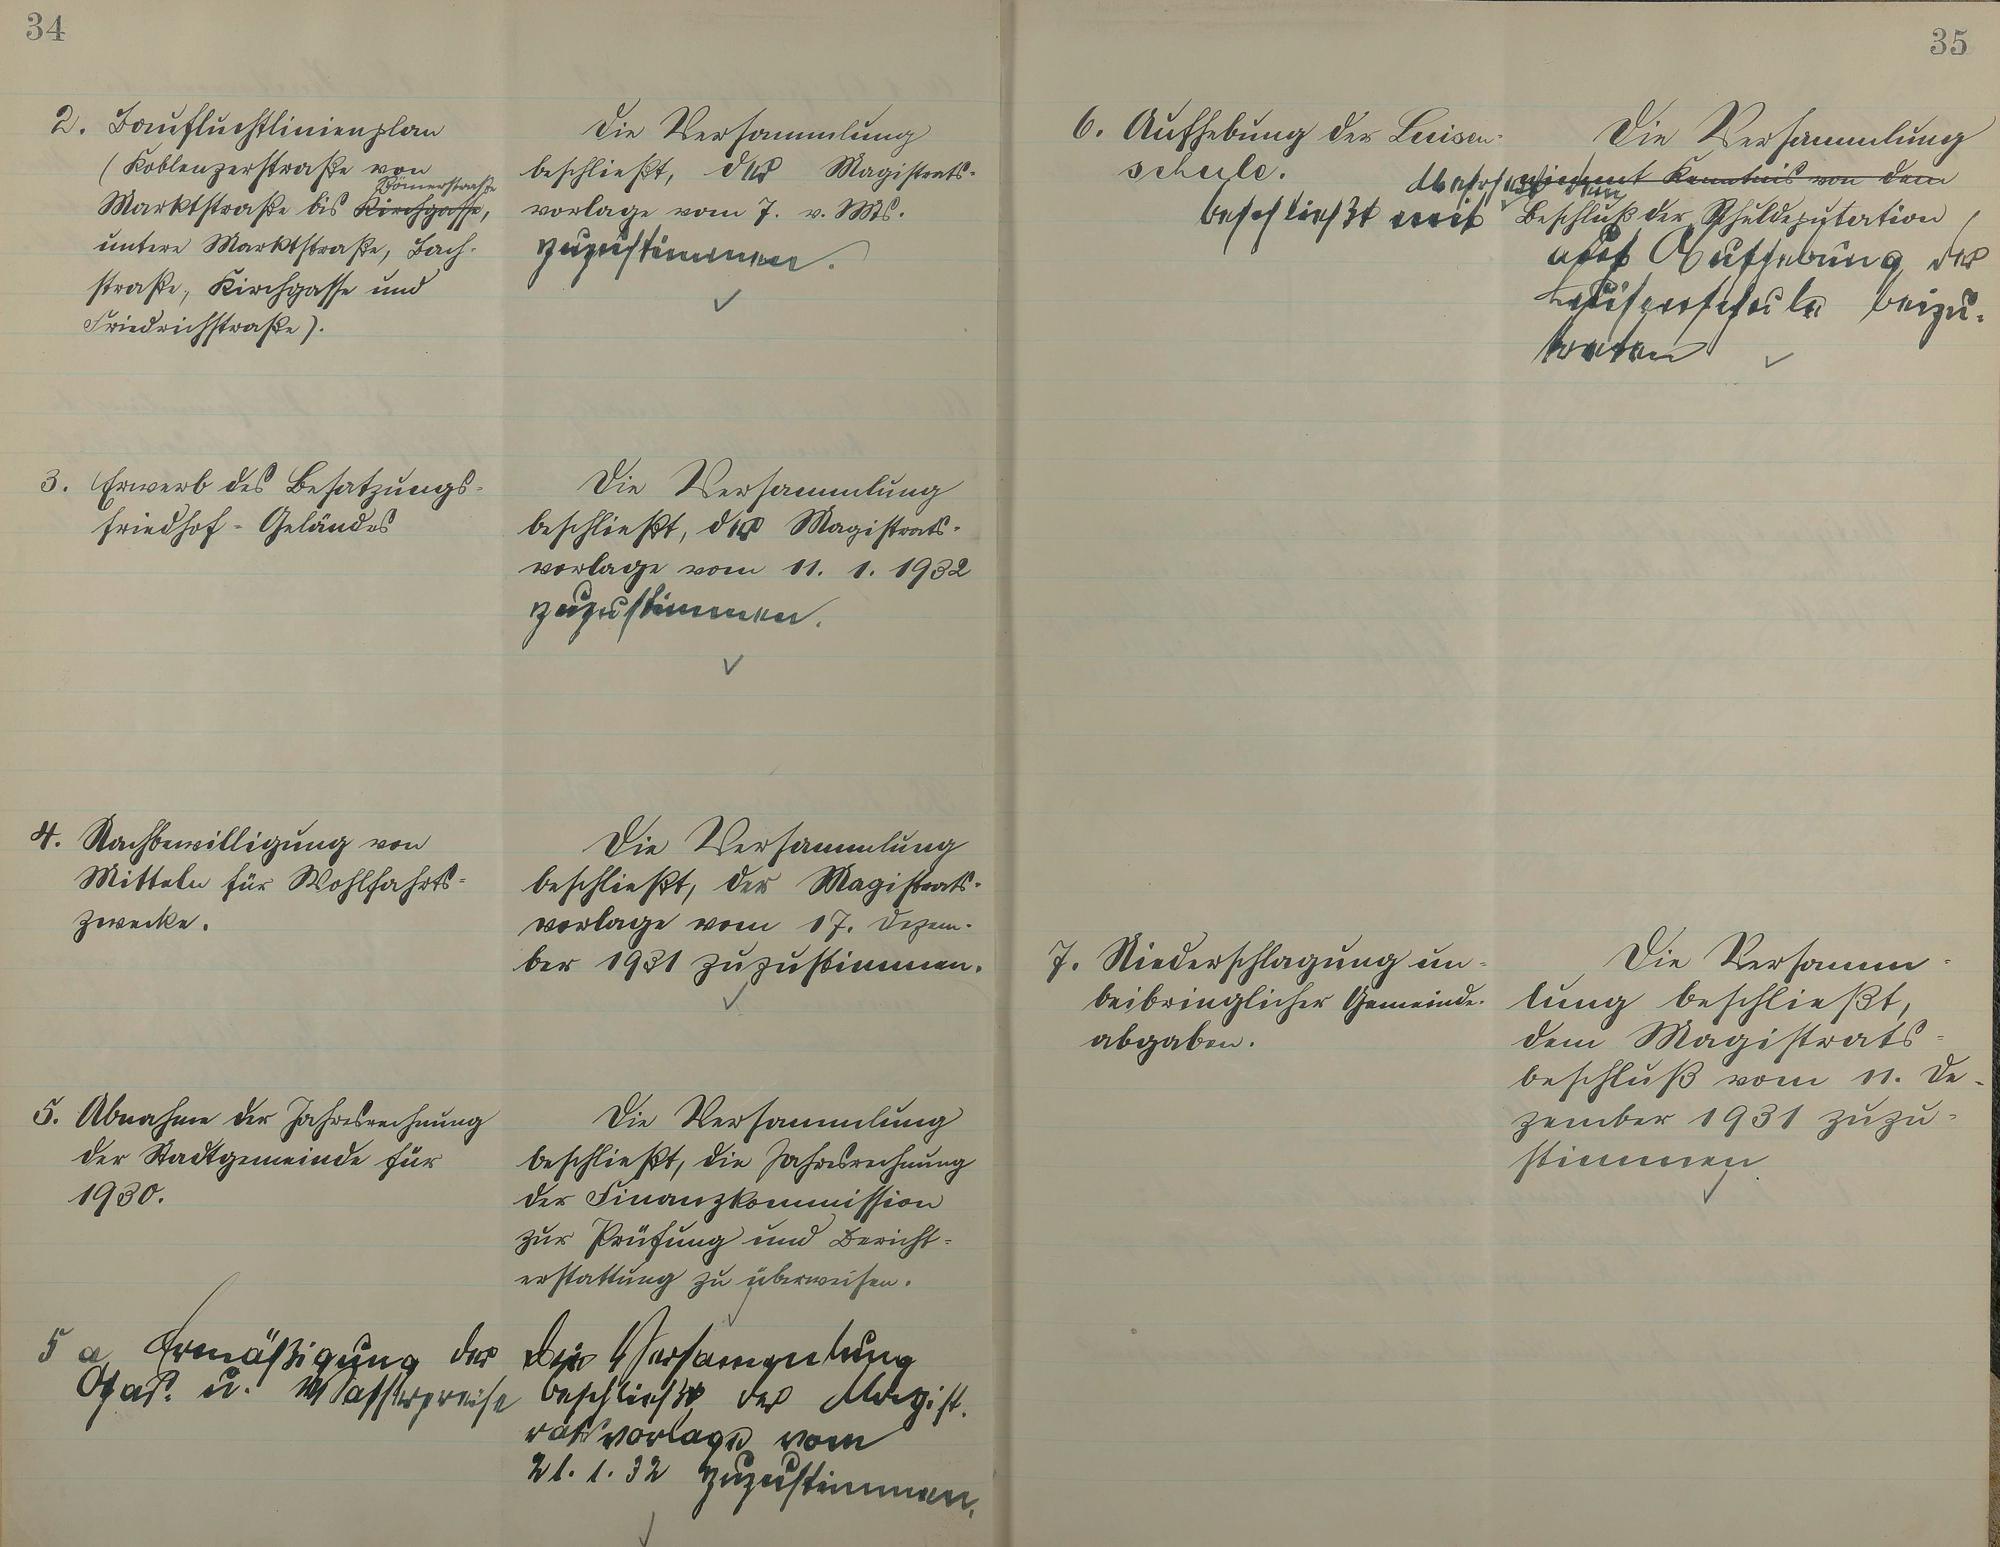 34
2. Baufluchtlinienplan
(Koblenzerstraße von
Römerstraße
Marktstraße bis Kirchgasse,
untere Marktstraße, Bach-
straße, Kirchgasse und
Friedrichstraße).
Die Versammlung
beschließt, der Magistrats-
vorlage vom 7. v. Mts.
zuzustimmen.
3. Erwerb des Besatzungs-
friedhof-Geländes
Die Versammlung
beschließt, der Magistrats-
vorlage vom 11. 1. 1932
zuzustimmen.
4. Nachbewilligung von
Mitteln für Wohlfahrts-
zwecke.
Die Versammlung
beschließt, der Magistrats-
vorlage vom 17. Dezem-
ber 1931 zuzustimmen.
5. Abnahme der Jahresrechnung
der Stadtgemeinde für
1930.
Die Versammlung
beschließt, die Jahresrechnung
der Finanzkommission
zur Prüfung und Bericht-
erstattung zu überweisen.
5 a Ermäßigung der
Gas- u. Wasserpreise
Die Versammlung
beschließt der Magist-
ratsvorlage vom
21. 1. 32 zuzustimmen.
35
6. Aufhebung der Luisen-
schule.
Die Versammlung
nimmt Kenntnis von dem
beschließt mit
dem
Beschluß der Schuldeputation
auf Aufhebung der
Luisenschule beizu-
treten
7. Niederschlagung un-
beibringlicher Gemeinde-
abgaben.
Die Versamm-
lung beschließt,
dem Magistrats-
beschluß vom 11. De-
zember 1931 zuzu-
stimmen.